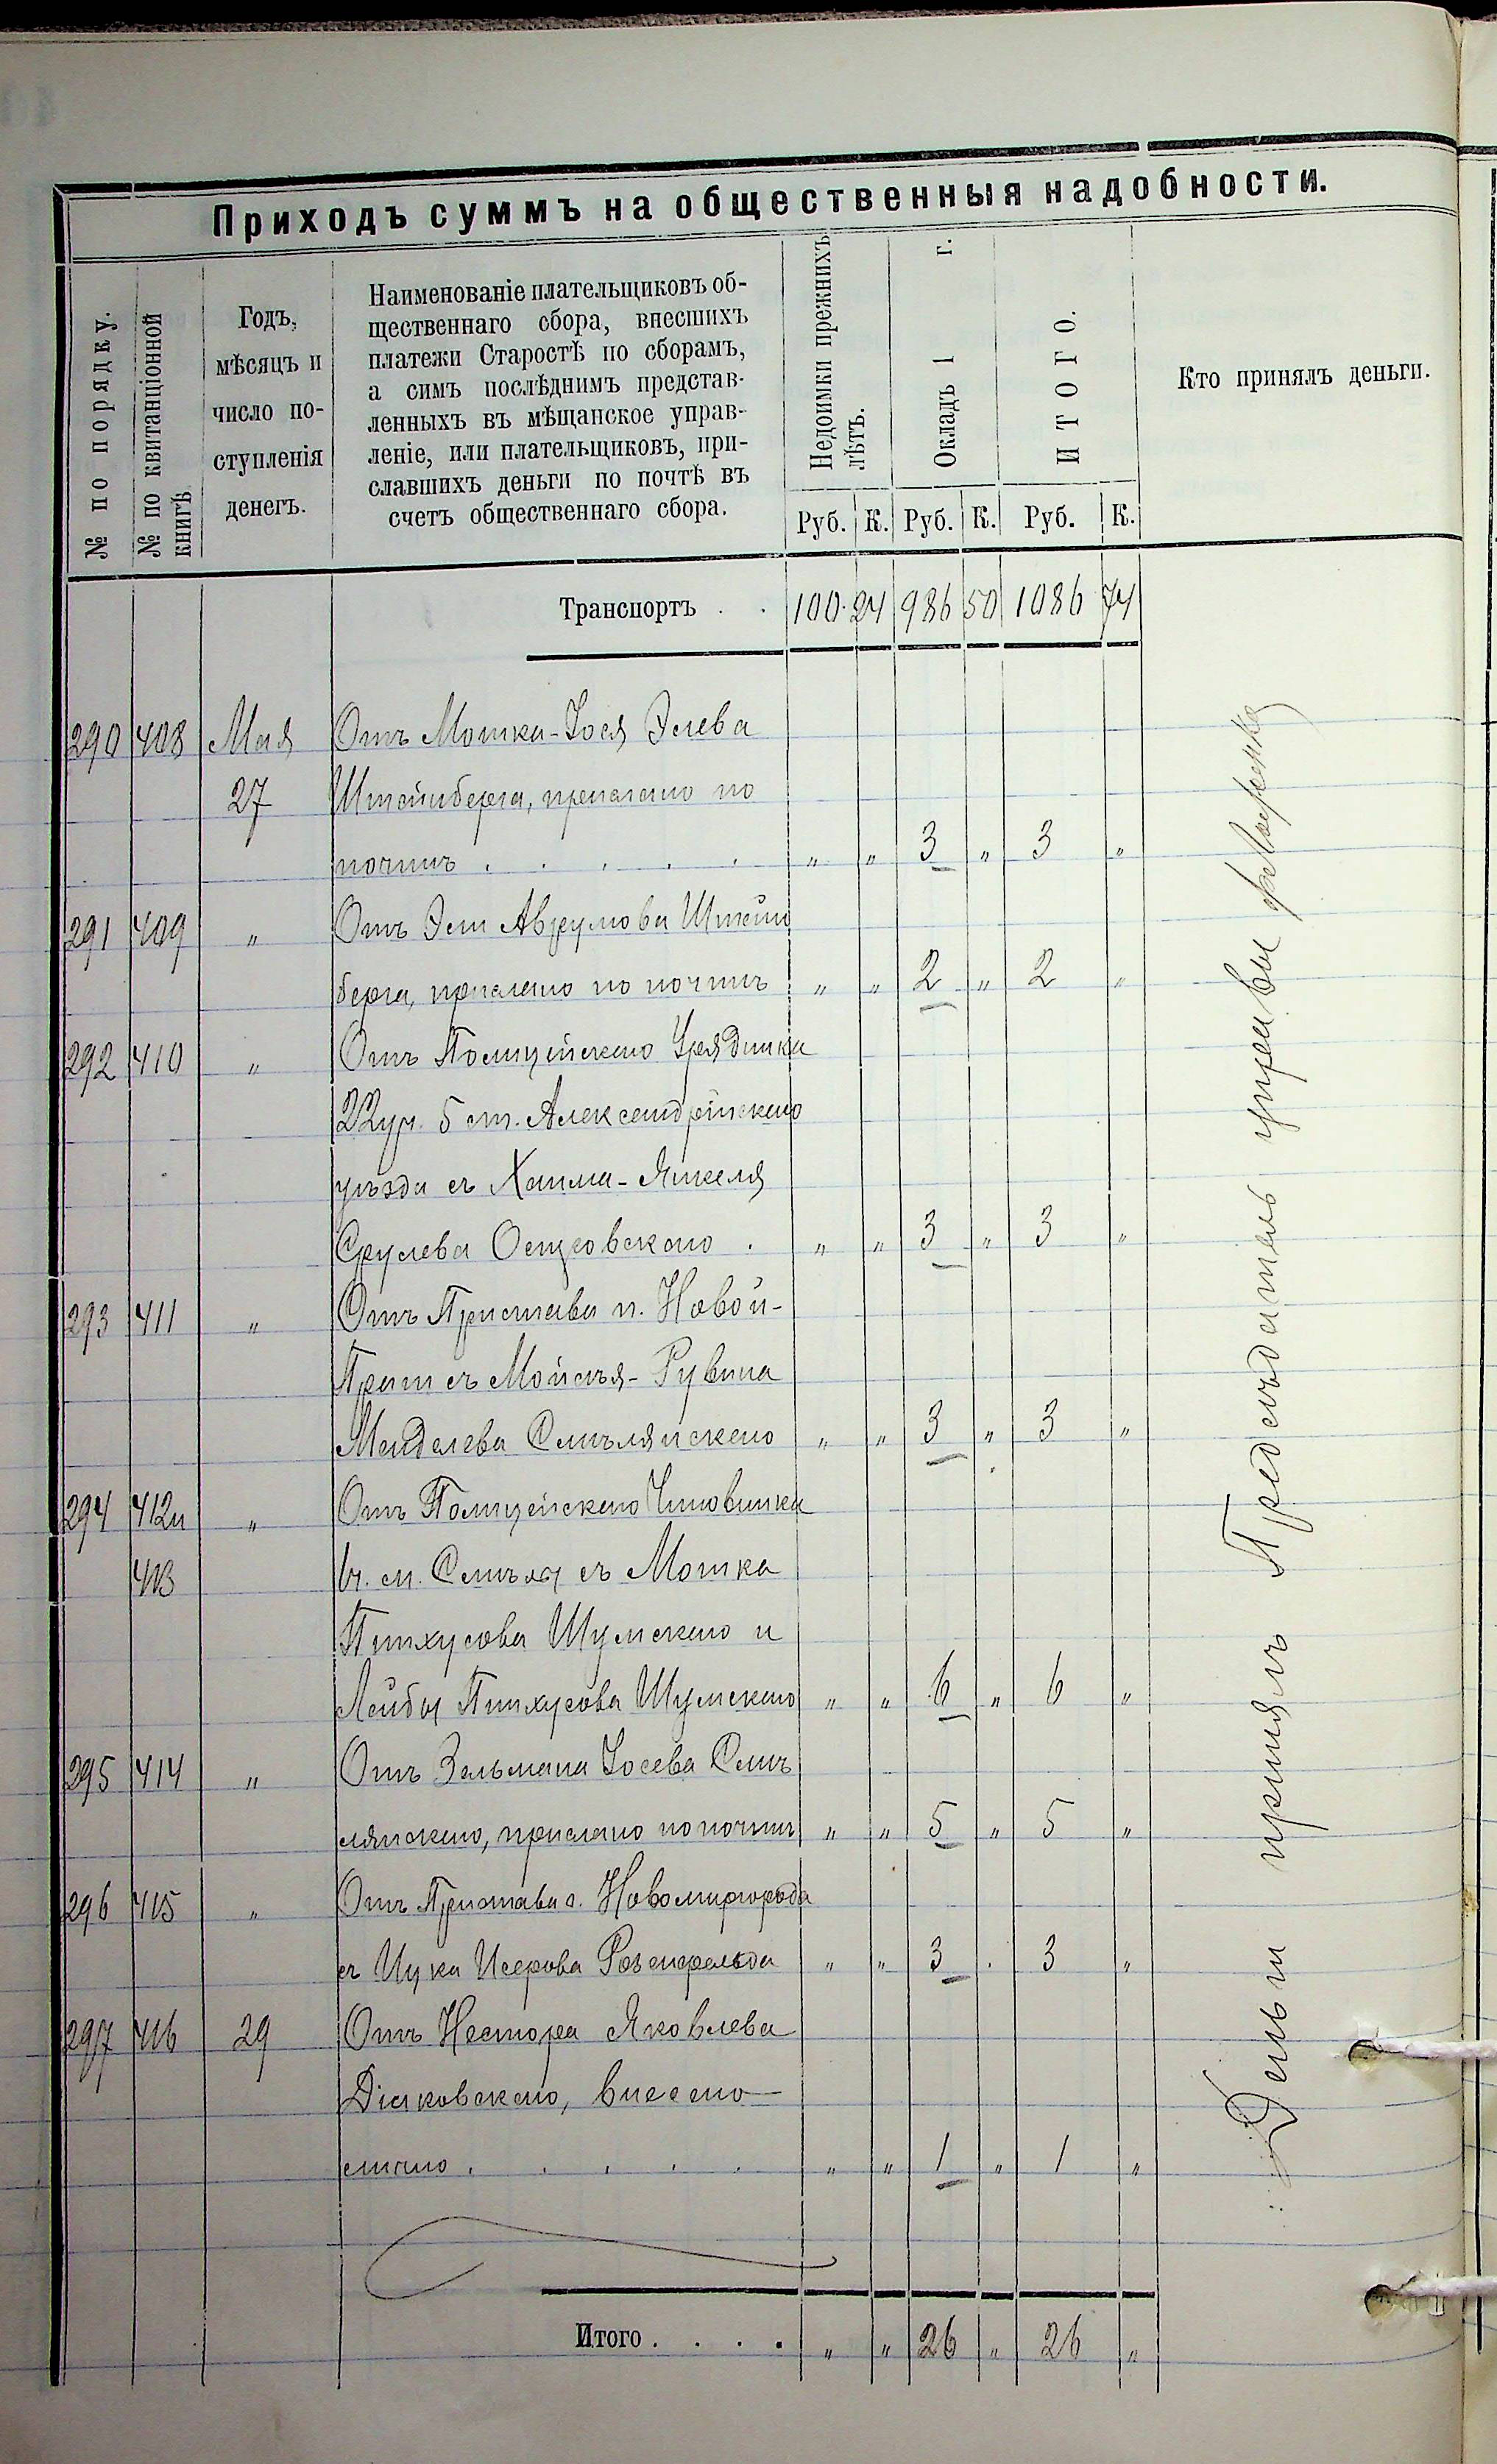 Приходъ суммъ на общественныя надобности.
№ по порядку.
№ по квитанціонной
книгѣ
Годъ,
мѣсяцъ и
число по-
ступленія
денегъ.
Наименованіе плательщиковъ об-
щественнаго сбора, внесшихъ
платежи Старостѣ по сборамъ,
а симъ послѣднимъ представ-
ленныхъ въ мѣщанское управ-
леніе, или плательщиковъ, при-
славшихъ деньги по почтѣ въ
счетъ общественнаго сбора.
Недоимки прежнихъ
лѣтъ.
Окладъ 1 г.
ИТОГО.
Кто принялъ деньги.
Руб. К. Руб. К. Руб. К.
Транспортъ . . 100 24 986 50 1086 74
290 408 Мая Отъ Мошка-Іося Элева
27 Штейнберга, прислано по
почтѣ . . . . . " " 3 " 3 "
291 409 " Отъ Эли Аврумова Штейн
берга, прислано по почтѣ " " 2 " 2 "
292 410 " Отъ Полицейскаго Урядника
22 уч. 5 ст. Александрійскаго
уѣзда съ Хаима-Янкеля
Срулева Островскаго . " " 3 " 3 "
293 411 " Отъ Пристава п. Новой-
Праги съ Мойсѣя-Рувина
Менделева Смѣлянскаго " " 3 " 3 "
294 412 и " Отъ Полицейскаго Чиновника
413 въ м. Смѣла съ Мошка
Пинхусова Шумскаго и
Лейбы Пинхусова Шумскаго " " 6 " 6 "
295 414 " Отъ Зельмана Іосева Смѣ
лянскаго, прислано по почтѣ " " 5 " 5 "
296 415 " Отъ Пристава г. Новомиргорода
съ Ицка Исерова Розенфельда " " 3 . 3 "
297 416 29 Отъ Нестора Яковлева
Діаковскаго, внесено
лично . . . . . " " 1 " 1 "
Итого . . . . " " 26 " 26 "
Деньги принялъ Предсѣдатель управы